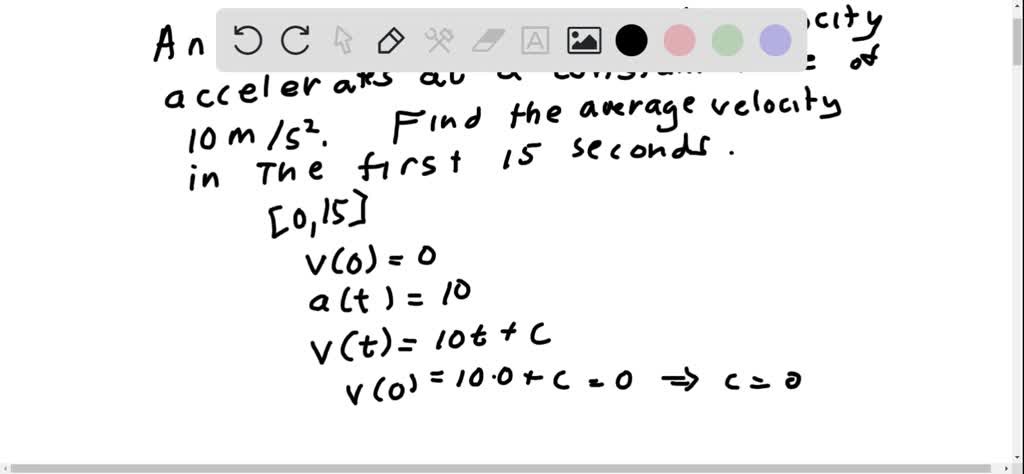 An ocity
accelerates at a constant of
10 m/s². Find the average velocity
in The first 15 seconds.
[0,15]
v(0) = 0
a(t) = 10
v(t) = 10t + C
v(0) = 10·0 + C = 0 ⇒ C = 0